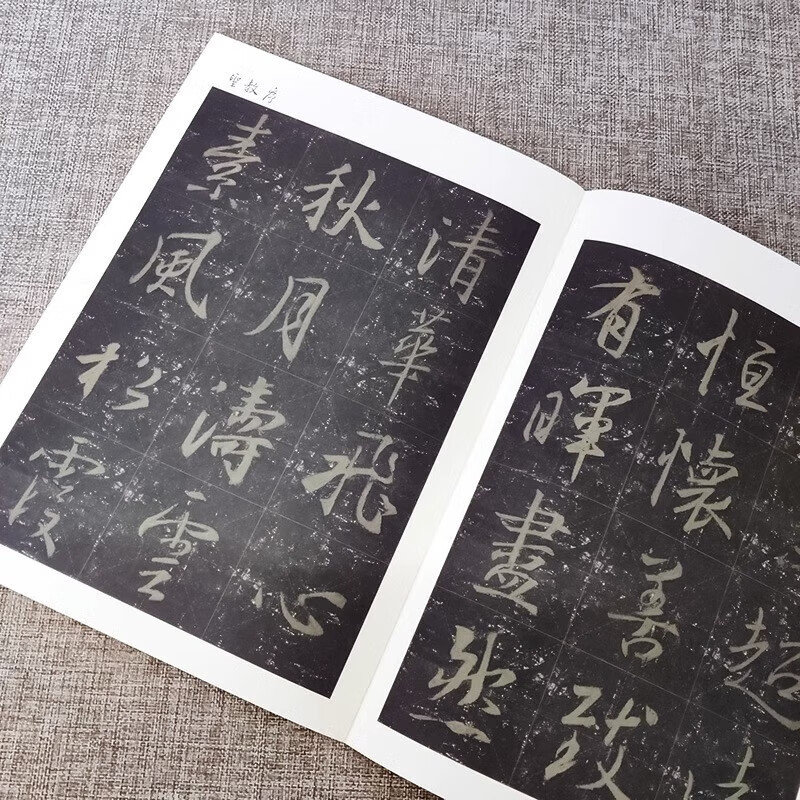 聖教序
超
恒懷善致
有暉盡然
清華飛心
秋月濤雲
素風松霞